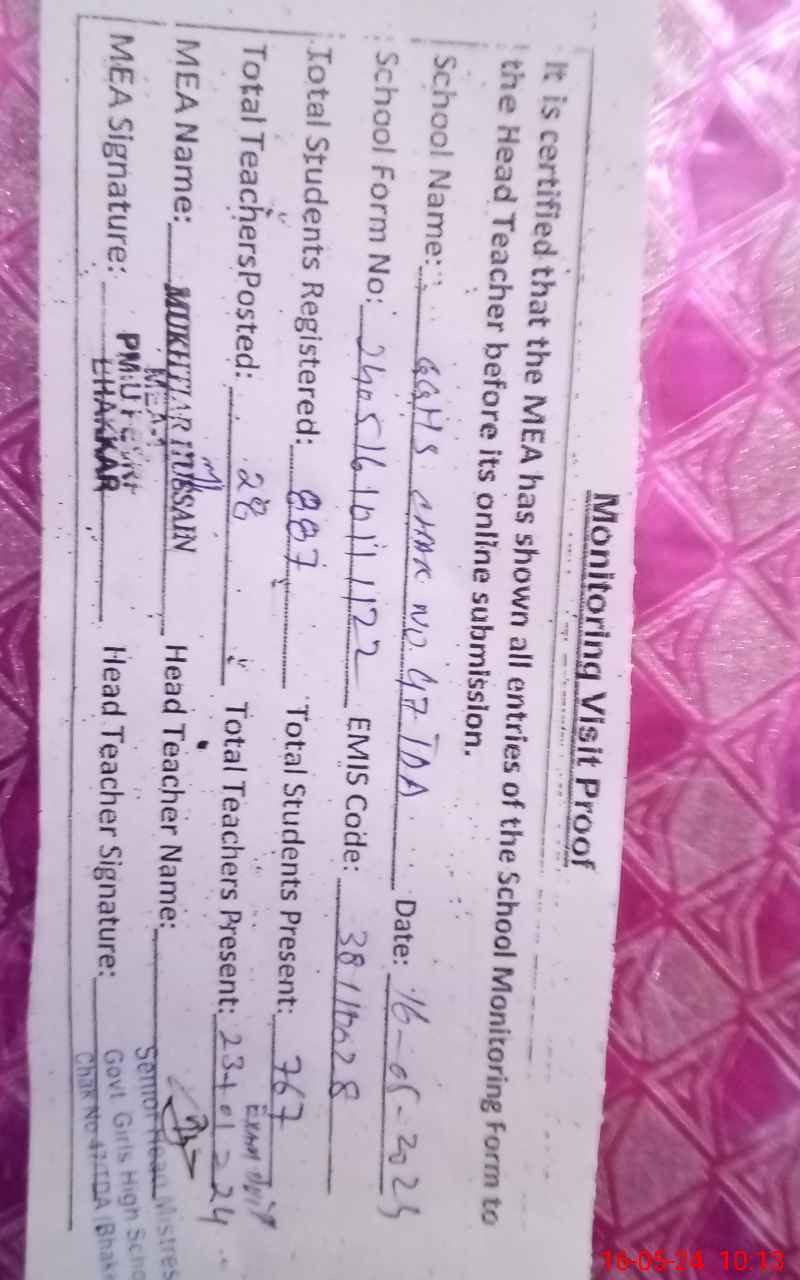 Monitoring Visit Proof
It is certified that the MEA has shown all entries of the School Monitoring Form to
the Head Teacher before its online submission.
School Name: GGHS CHAK NO. 47 TDA Date: 16-05-2024
School Form No: EMIS Code:
Total Students Registered: 887 Total Students Present: 767
Total TeachersPosted: 28 Total Teachers Present: 23+01=24 Exam Duty
MEA Name: MUKHTIAR HUSSAIN Head Teacher Name:
MEA-1
MEA Signature: Head Teacher Signature:
BHAKKAR
Senior Head Mistres
Govt Girls High Scho
Chak No 47/TDA (Bhakk
16-05-24 10:13